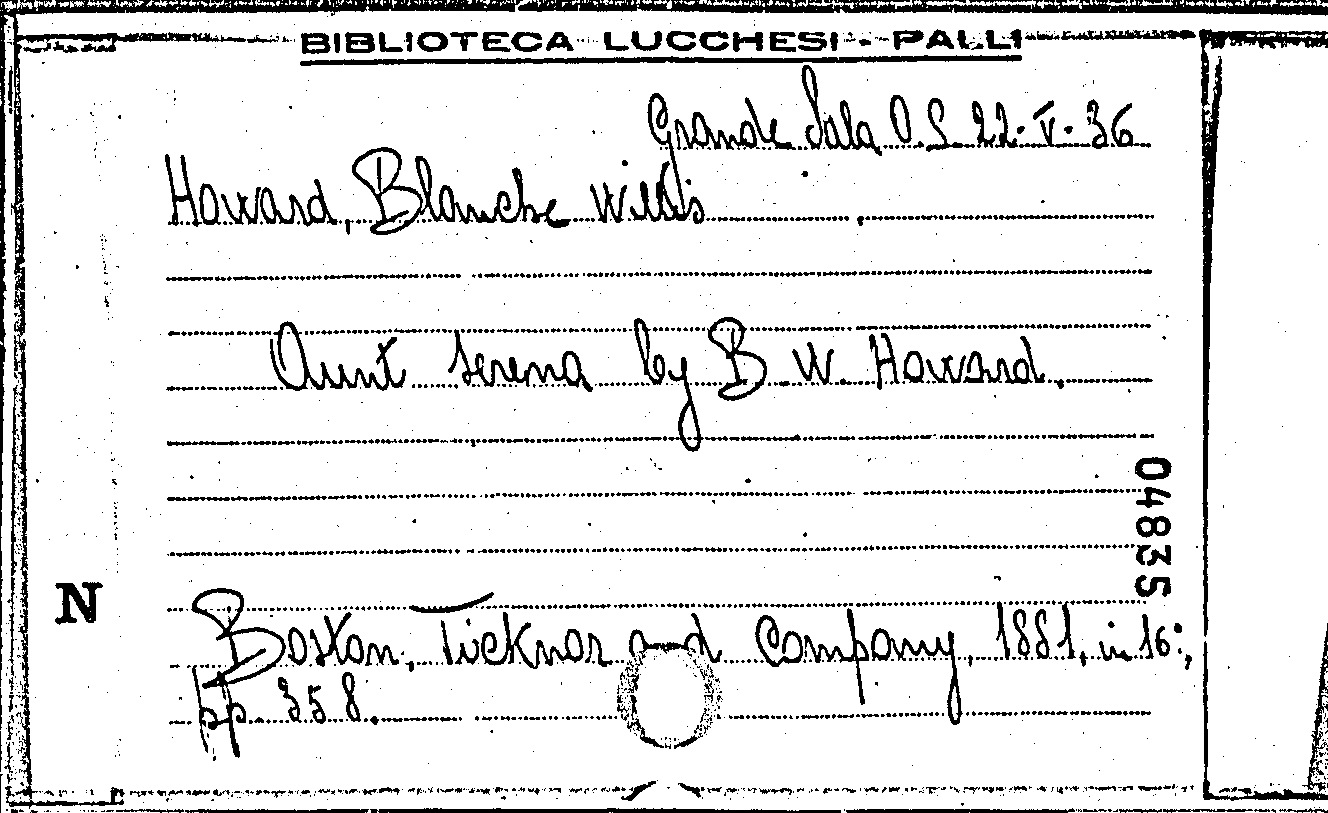 BIBLIOTECA LUCCHESI - PALLI
Grande Sala O.S. 22.V.36
Howard, Blanche Willis
Aunt Serena by B W. Howard.
04835
N
Boston, Ticknor and Company, 1881, in 16°,
pp. 358.